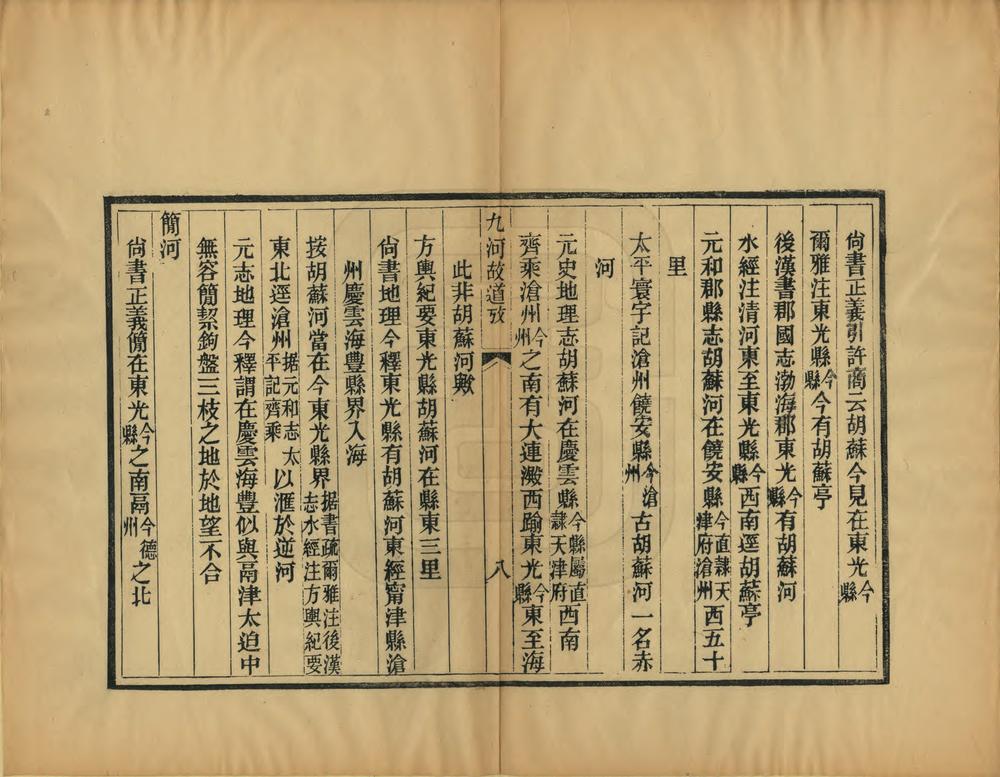 尙書正義引許商云胡蘇今見在東光今縣
爾雅注東光縣今縣今有胡蘇亭
後漢書郡國志渤海郡東光今縣有胡蘇河
水經注清河東至東光縣今縣西南逕胡蘇亭
元和郡縣志胡蘇河在饒安縣今直隸天津府滄州西五十
里
太平寰宇記滄州饒安縣今滄州古胡蘇河一名赤
河
元史地理志胡蘇河在慶雲縣今縣屬直隸天津府西南
齊乘滄州今州之南有大連澱西踰東光今縣東至海
九河故道攷 八
此非胡蘇河歟
方輿紀要東光縣胡蘇河在縣東三里
尙書地理今釋東光縣有胡蘇河東經甯津縣滄
州慶雲海豐縣界入海
按胡蘇河當在今東光縣界据書疏爾雅注後漢志水經注方輿紀要
東北逕滄州据元和志太平記齊乘以滙於逆河
元志地理今釋謂在慶雲海豐似與鬲津太迫中
無容簡絜鉤盤三枝之地於地望不合
簡河
尙書正義簡在東光今縣之南鬲今德州之北